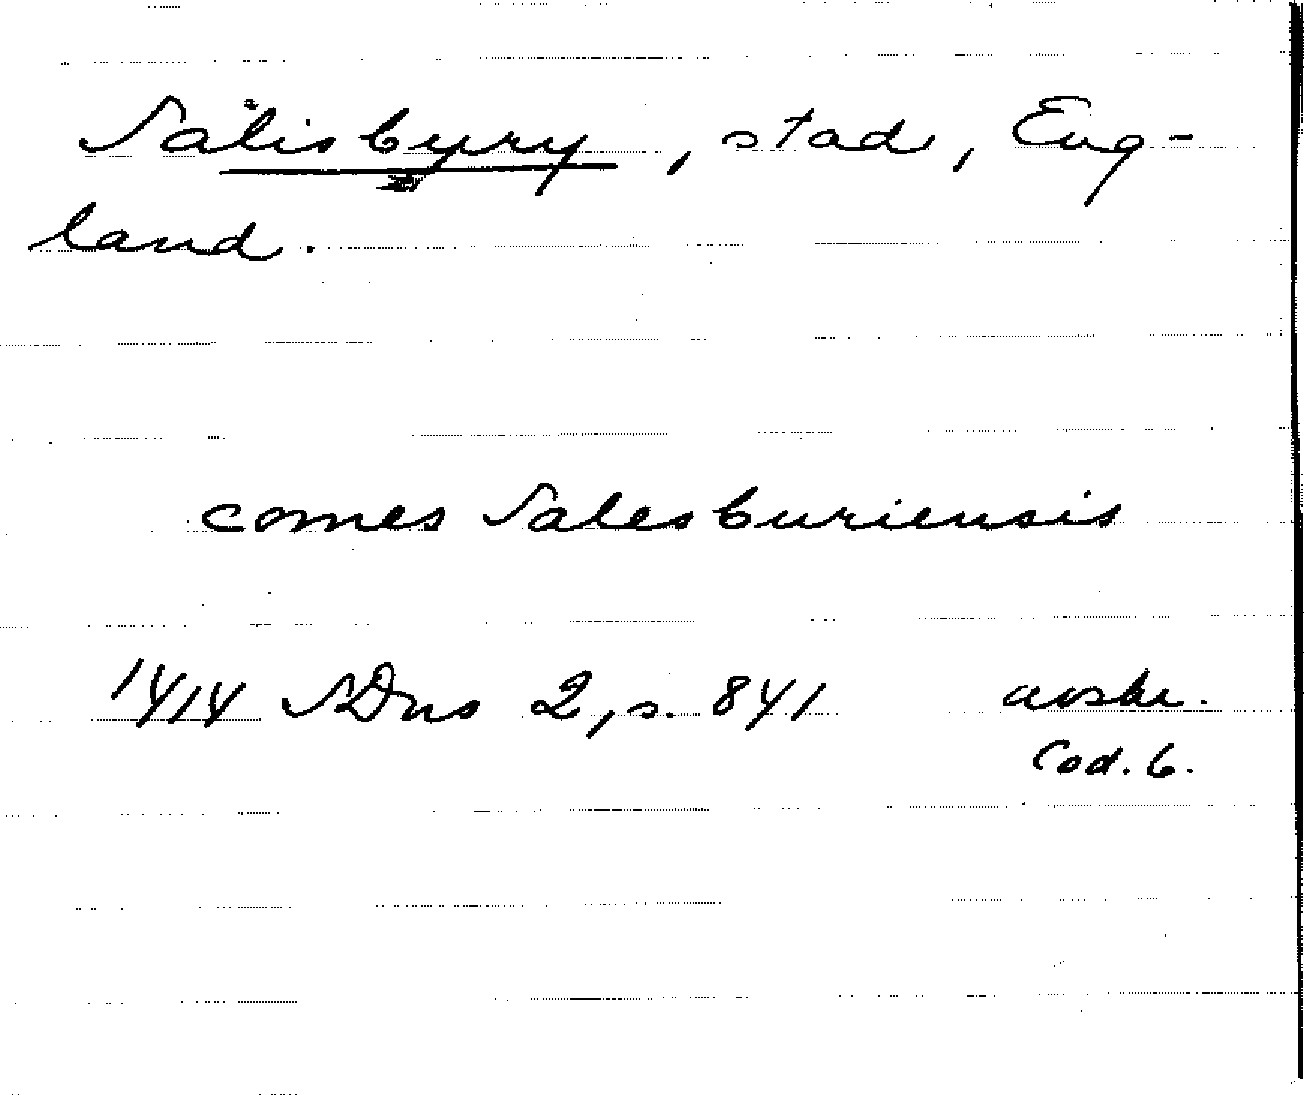 Salisbury, stad, Eng-
land.
comes Salesburiensis
1414 SDns 2, s. 841 avskr.
Cod. 6.